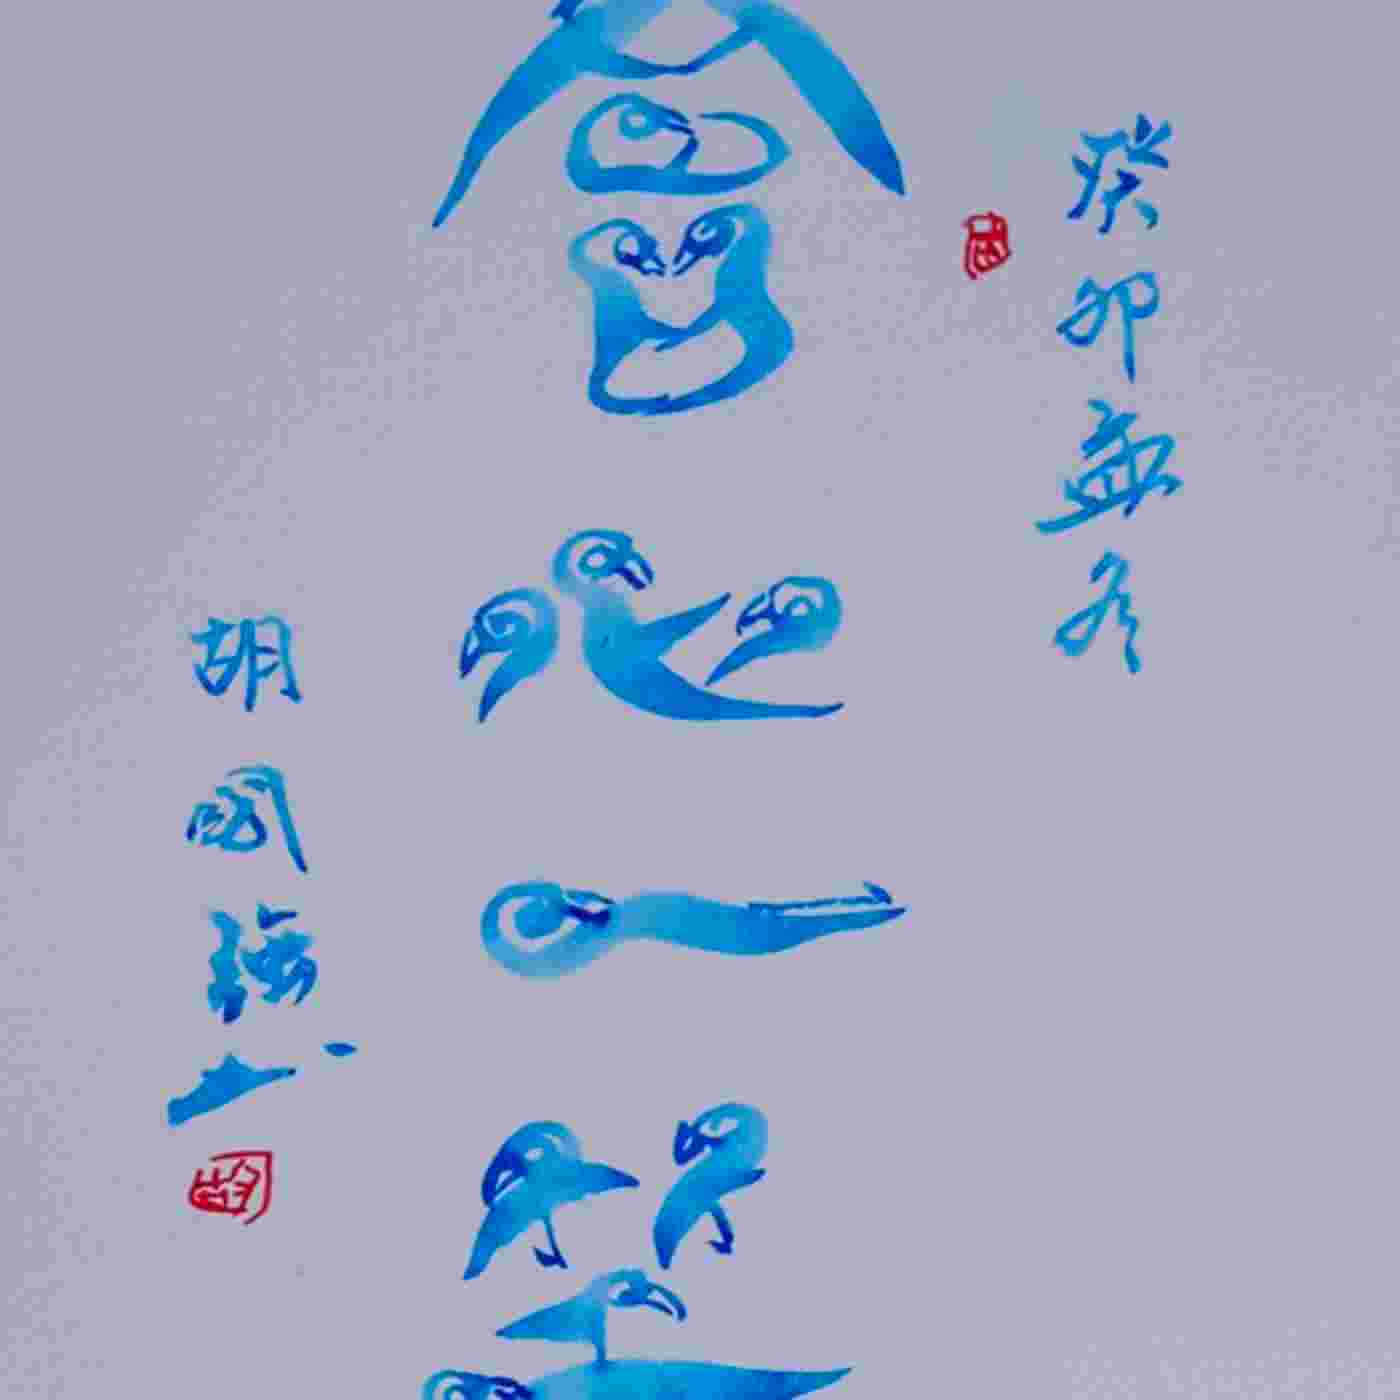 癸卯孟冬
會心一笑
胡國強